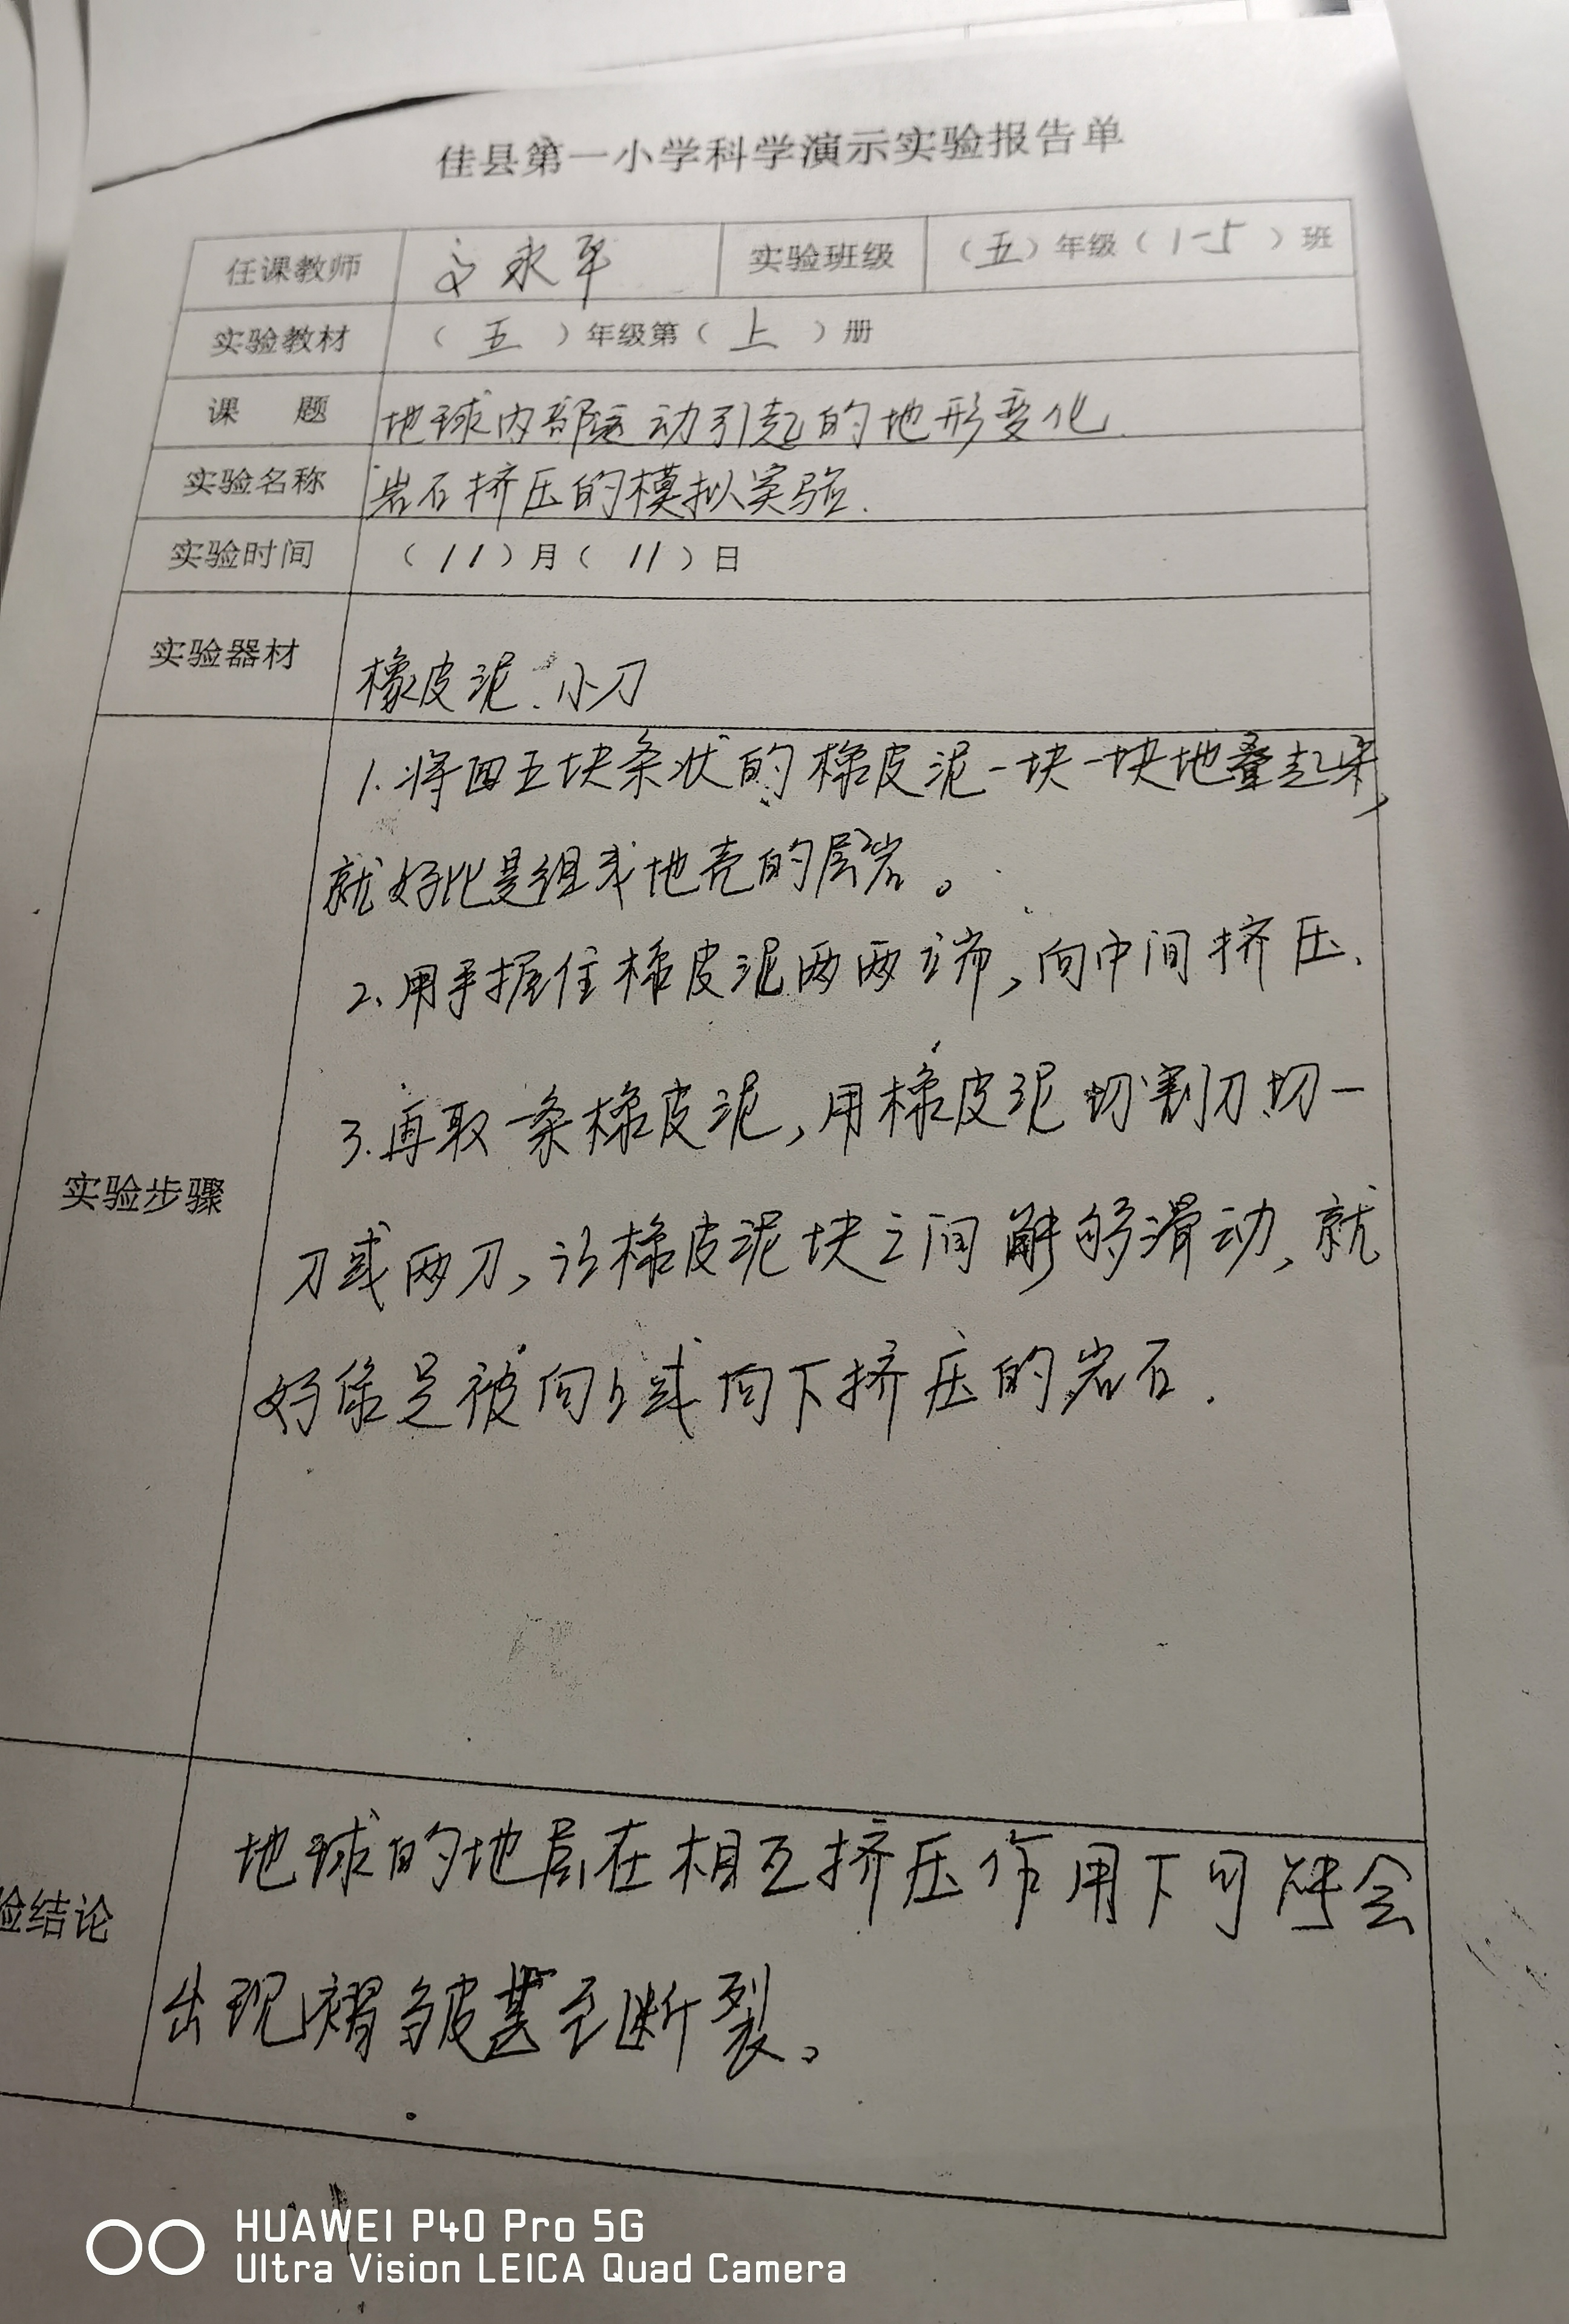 佳县第一小学科学演示实验报告单
任课教师 永平 实验班级 （五）年级（1-5）班
实验教材 （五）年级第（上）册
课 题 地球内部运动引起的地形变化.
实验名称 岩石挤压的模拟实验.
实验时间 （11）月（11）日
实验器材 橡皮泥、小刀
实验步骤
1.将四五块条状的橡皮泥一块一块地叠起来,
就好比是组成地壳的层岩。
2、用手握住橡皮泥两两端,向中间挤压、
3.再取一条橡皮泥,用橡皮泥切割刀切一
刀或两刀,让橡皮泥块之间能够滑动,就
好像是被向上或向下挤压的岩石.
验结论
地球的地层在相互挤压作用下可能会
出现褶皱甚至断裂。
HUAWEI P40 Pro 5G
Ultra Vision LEICA Quad Camera